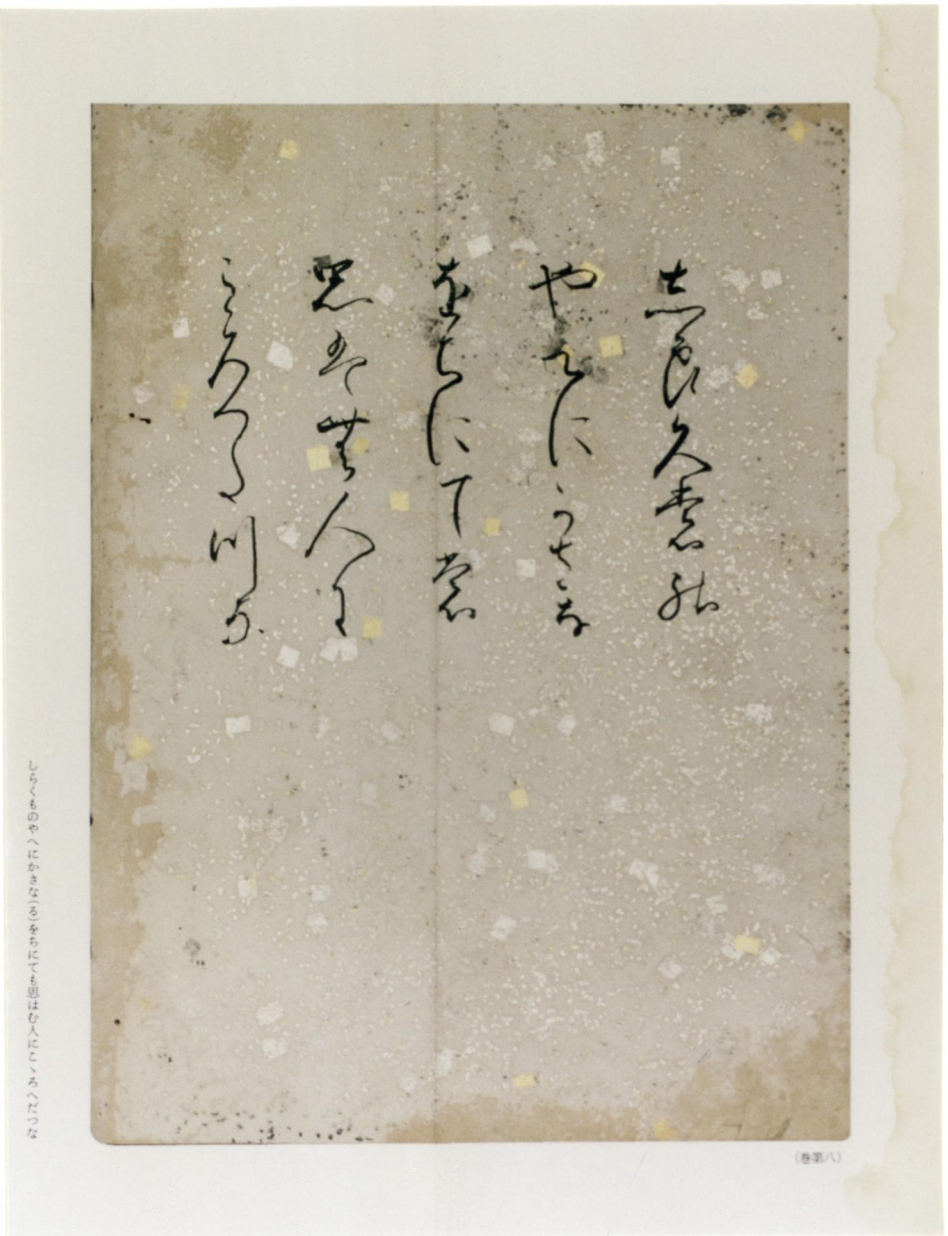 志良久裳能
やへにかさな
をちにても
思はむ人に
こゝろへたつな
(巻第八)
しらくものやへにかさな(る)をちにても思はむ人にこゝろへだつな